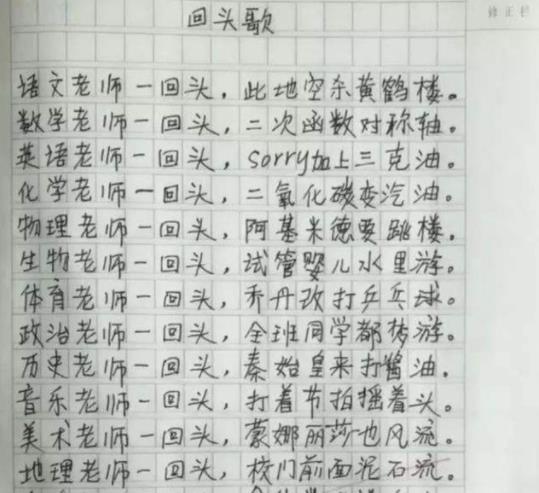 修正栏
回头歌
语文老师一回头，此地空杀黄鹤楼。
数学老师一回头，二次函数对称轴。
英语老师一回头，sorry加上三克油。
化学老师一回头，二氧化碳变汽油。
物理老师一回头，阿基米德要跳楼。
生物老师一回头，试管婴儿水里游。
体育老师一回头，乔丹改打乒乓球。
政治老师一回头，全班同学都梦游。
历史老师一回头，秦始皇来打酱油。
音乐老师一回头，打着节拍摇着头。
美术老师一回头，蒙娜丽莎也风流。
地理老师一回头，校门前面泥石流。